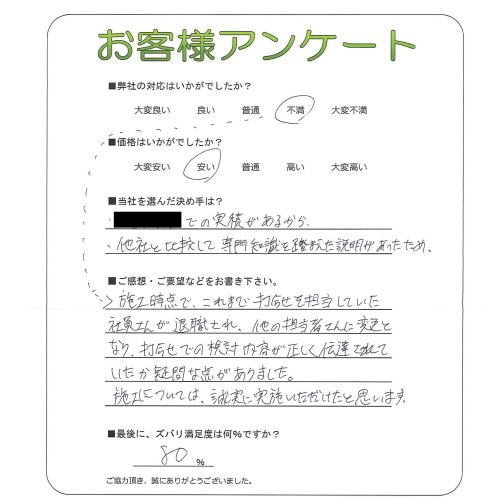 お客様アンケート
■弊社の対応はいかがでしたか？
大変良い 良い 普通 不満 大変不満
■価格はいかがでしたか？
大変安い 安い 普通 高い 大変高い
■当社を選んだ決め手は？
・ での実績があるから、
・他社と比較して専門知識を踏まえた説明があったため、
■ご感想・ご要望などをお書き下さい。
施工時点で、これまで打合せを担当していた
社員さんが退職され、他の担当者さんに変更と
なり、打合せでの検討内容が正しく伝達されて
いたか疑問な点がありました。
施工については、誠実に実施いただけたと思います。
■最後に、ズバリ満足度は何%ですか？
80 %
ご協力頂き、誠にありがとうございました。